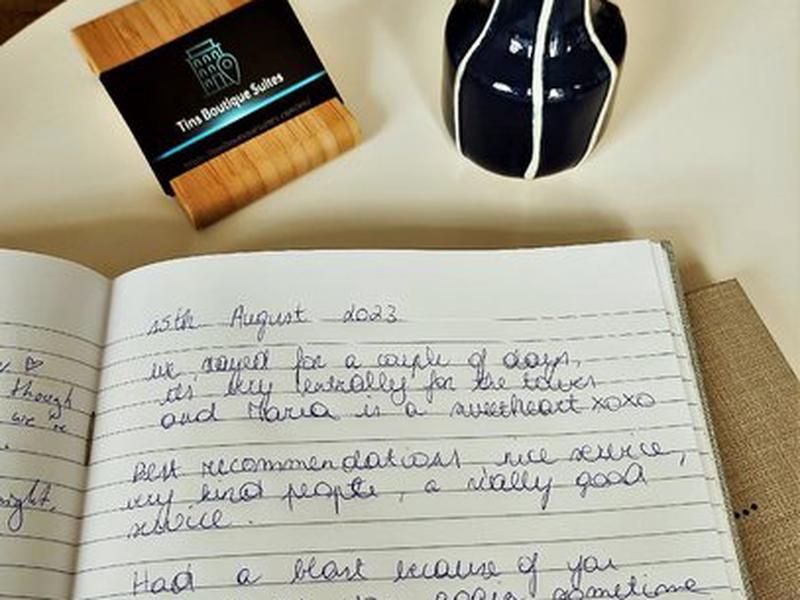 Tins Boutique Suites
15th August 2023
we stayed for a couple of days,
its very centrally for the towns
and Maria is a sweetheart xoxo
Best recommendations nice service,
very kind people, a really good
service.
Had a blast because of you
again sometime
though
we're
night,